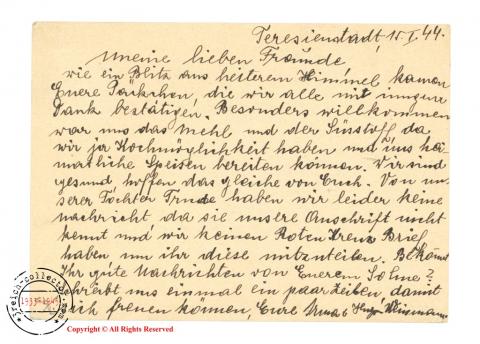 Teresienstadt, 15.I.44.
Meine lieben Freunde
wie ein Blitz aus heiterem Himmel kamen
Euere Päckchen, die wir alle mit innigem
Dank bestätigen. Besonders willkommen
war uns das Mehl und der Süsstoff da
wir ja Kochmöglichkeit haben und uns hei-
matliche Speisen bereiten können. Wir sind
gesund, hoffen das gleiche von Euch. Von un-
serer Tochter Trude haben wir leider keine
nachricht da sie unsere Anschrift nicht
kennt und wir keinen Roten Kreuz Brief
haben, um ihr diese mitzuteilen. Bekommt
Ihr gute Nachrichten von Euerem Sohne?
schreibt uns einmal ein paar Zeilen, damit
wir uns freuen können, Eure
3reich-collector.com
1933-1945
Copyright © All Rights Reserved